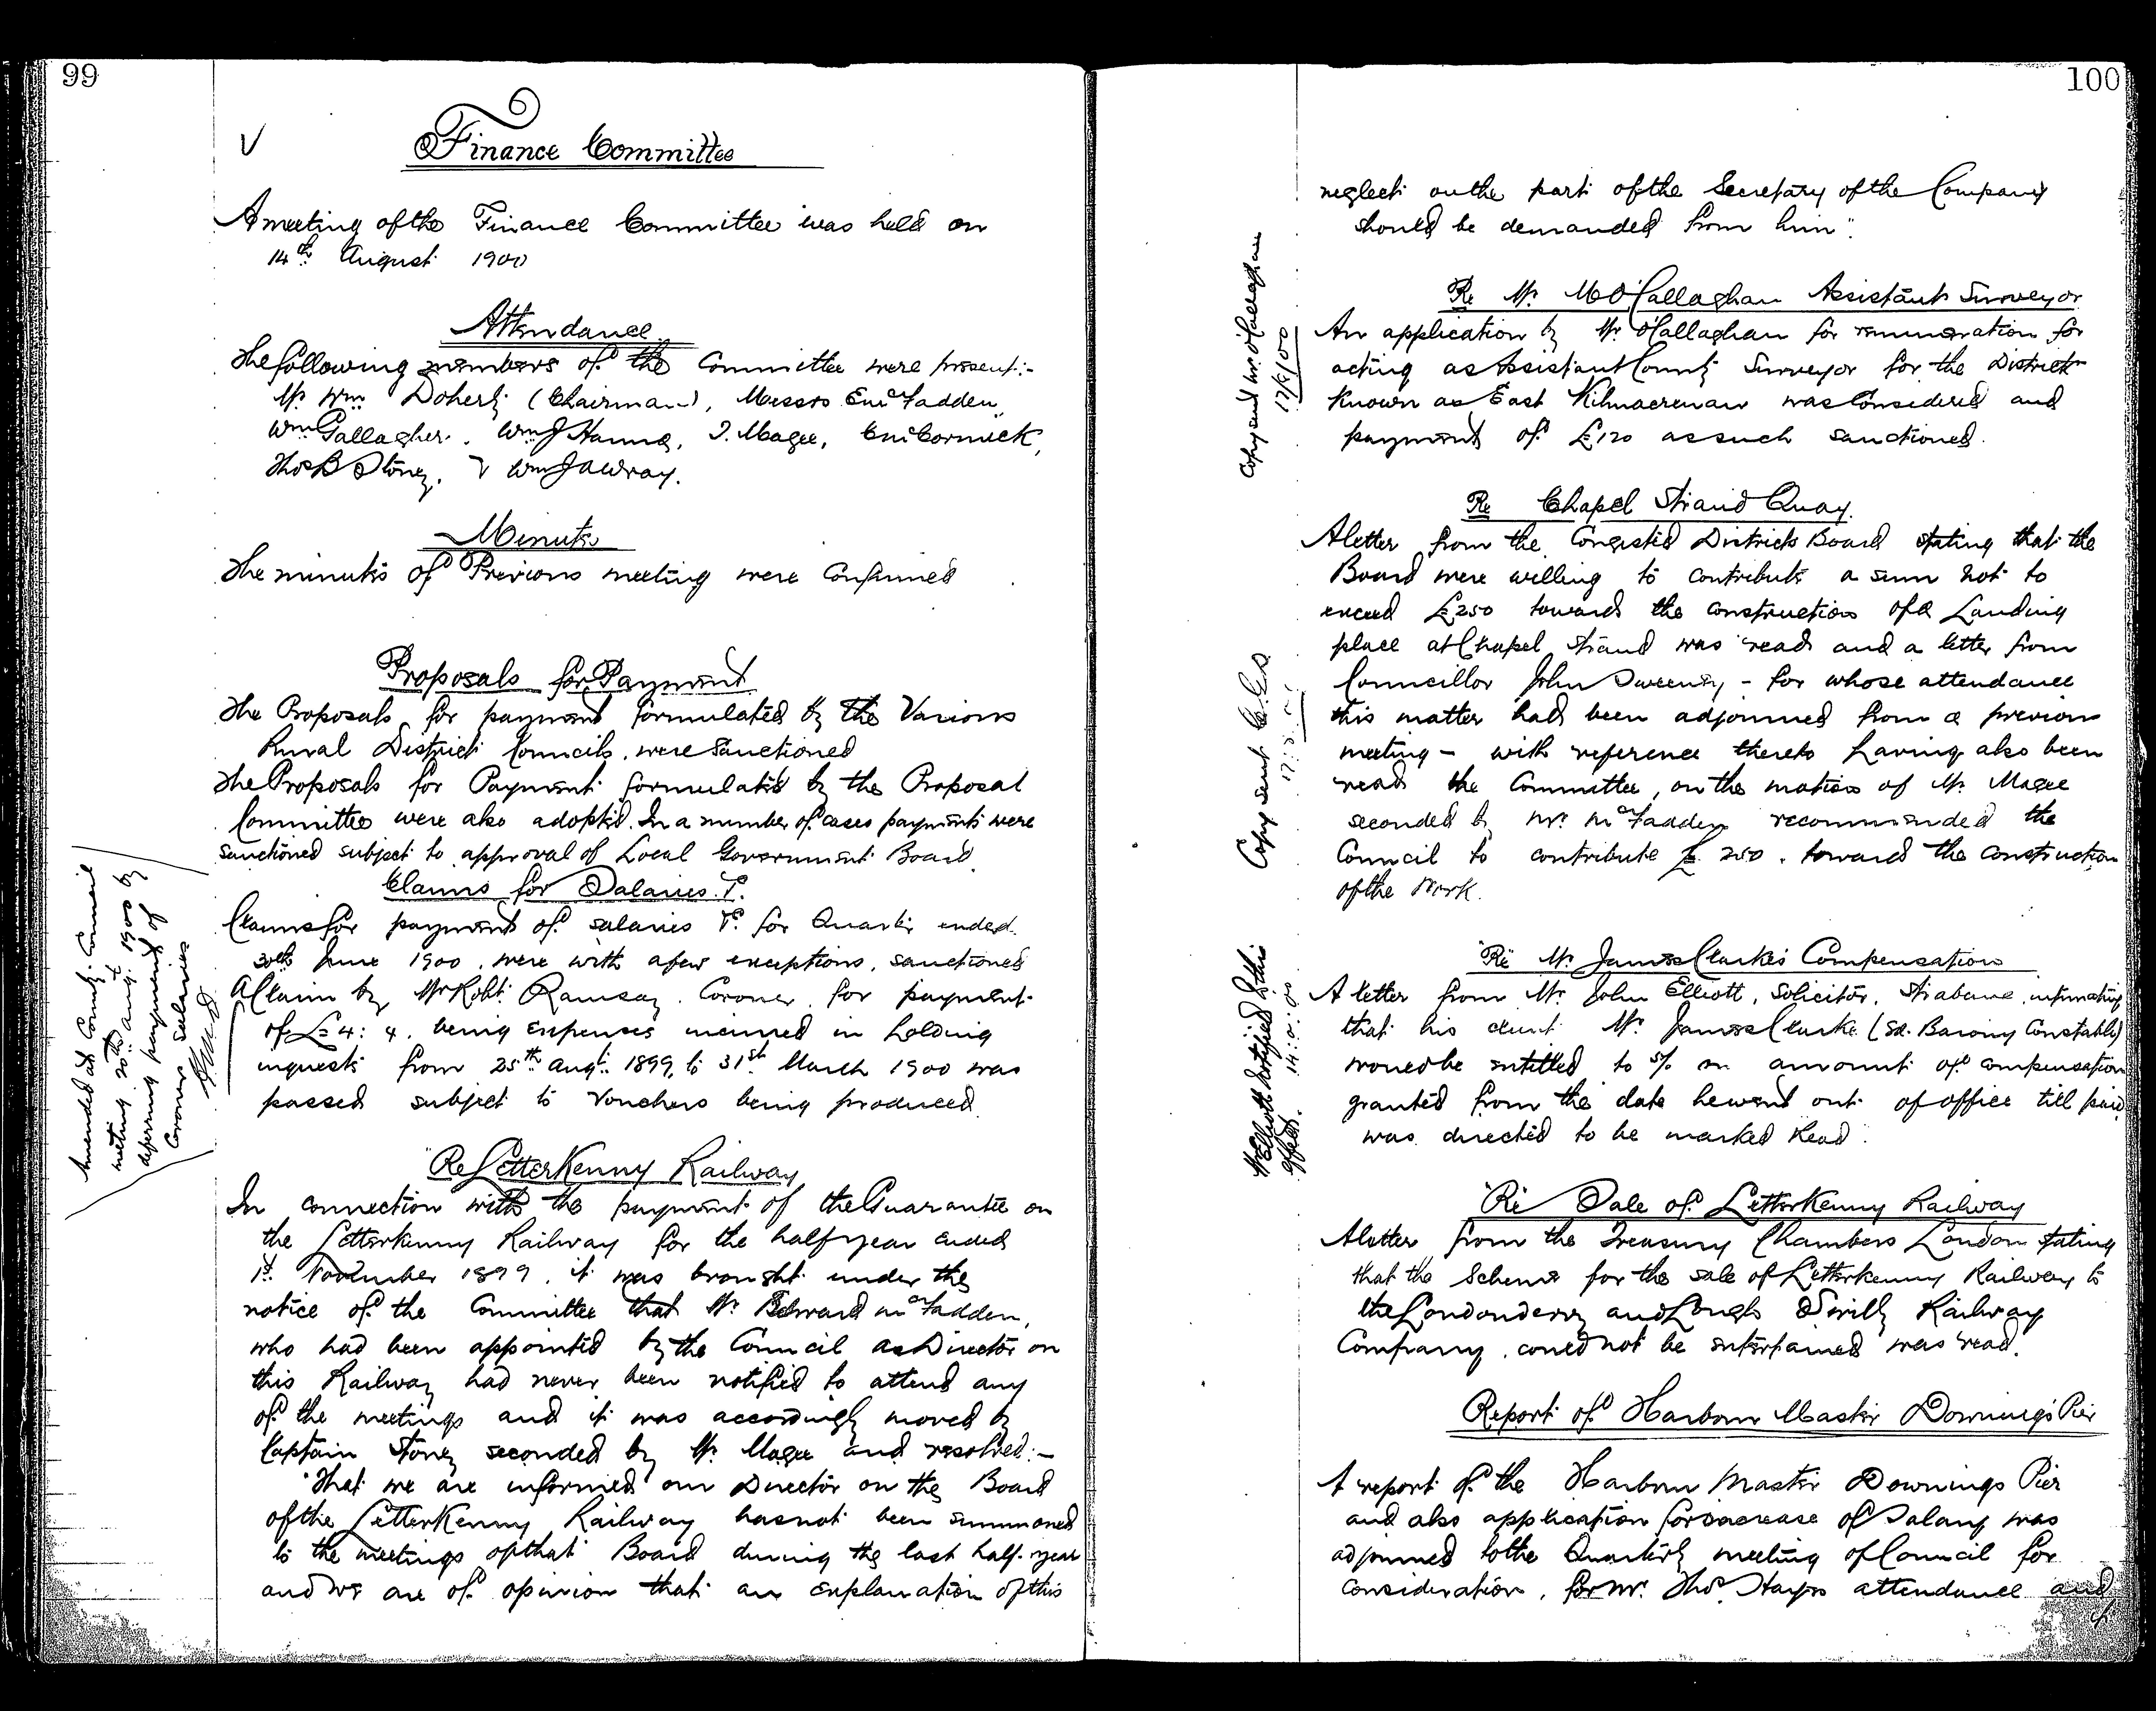 99
V
Finance Committee
A meeting of the Finance Committee was held on
14th August 1900
Attendance
The following members of the Committee were present:-
Mr Wm Doherty (Chairman), Messrs E McFadden,
Wm Gallagher, Wm J Hanna, J. Magee, E McCormick,
Thos B Stoney, & Wm J A Wray.
Minutes
The minutes of Previous meeting were Confirmed
Proposals for Payment
The Proposals for payment formulated by the Various
Rural District Councils were Sanctioned
The Proposals for Payment formulated by the Proposal
Committee were also adopted. In a number of cases payments were
sanctioned subject to approval of Local Government Board.
Claims for Salaries &c.
Claims for payment of salaries &c. for Quarter ended
30th June 1900, were with a few exceptions, sanctioned
A Claim by Mr Robt. Ramsay, Coroner, for payment
of £4: 4, being expenses incurred in holding
inquests from 25th Augt. 1899, to 31st March 1900 was
passed subject to Vouchers being produced.
Amended at County Council
meeting 20th Augt 1900 by
deferring payment of
Coroners Salaries
Re LetterKenny Railway
In connection with the payment of the Guarantee on
the Letterkenny Railway for the half year ended
1st November 1899, it was brought under the
notice of the Committee that Mr Edward McFadden,
who had been appointed by the Council as Director on
this Railway had never been notified to attend any
of the meetings and it was accordingly moved by
Captain Stoney seconded by Mr Magee and resolved:-
"That we are informed our Director on the Board
of the LetterKenny Railway has not been summoned
to the meetings of that Board during the last half-year
and we are of opinion that an explanation of this
100
neglect on the part of the Secretary of the Company
should be demanded from him".
Re Mr M O'Callaghan Assistant Surveyor
An application by Mr O'Callaghan for remuneration for
acting as Assistant County Surveyor for the District
known as East Kilmacrenan was Considered and
payment of £120 as such sanctioned.
Copy sent Mr. O'Callaghan
17/8/00
Re Chapel Strand Quay.
A letter from the Congested Districts Board stating that the
Board were willing to contribute a sum not to
exceed £250 towards the construction of a Landing
place at Chapel Strand was read and a letter from
Councillor John Sweeney - for whose attendance
this matter had been adjourned from a previous
meeting - with reference thereto having also been
read the Committee, on the motion of Mr. Magee
seconded by Mr. McFadden recommended the
Council to contribute £250. toward the construction
of the Work.
Copy sent
Re Mr James Clarke's Compensation
A letter from Mr John Elliott, Solicitor, Strabane, intimating
that his client Mr James Clarke (Sr. Barony Constable)
would be entitled to 5% on amount of compensation
granted from the date he went out of office till paid
was directed to be marked Read.
Mr Elliott notified to this
effect.
Re Sale of LetterKenny Railway
A letter from the Treasury Chambers London stating
that the Scheme for the sale of Letterkenny Railway to
the Londonderry and Lough Swilly Railway
Company, could not be entertained was read.
Report of Harbour Master Downings Pier
A report of the Harbour Master Downings Pier
and also application for increase of Salary was
adjourned to the Quarterly meeting of Council for
consideration, for Mr. Thos. Hayes attendance and